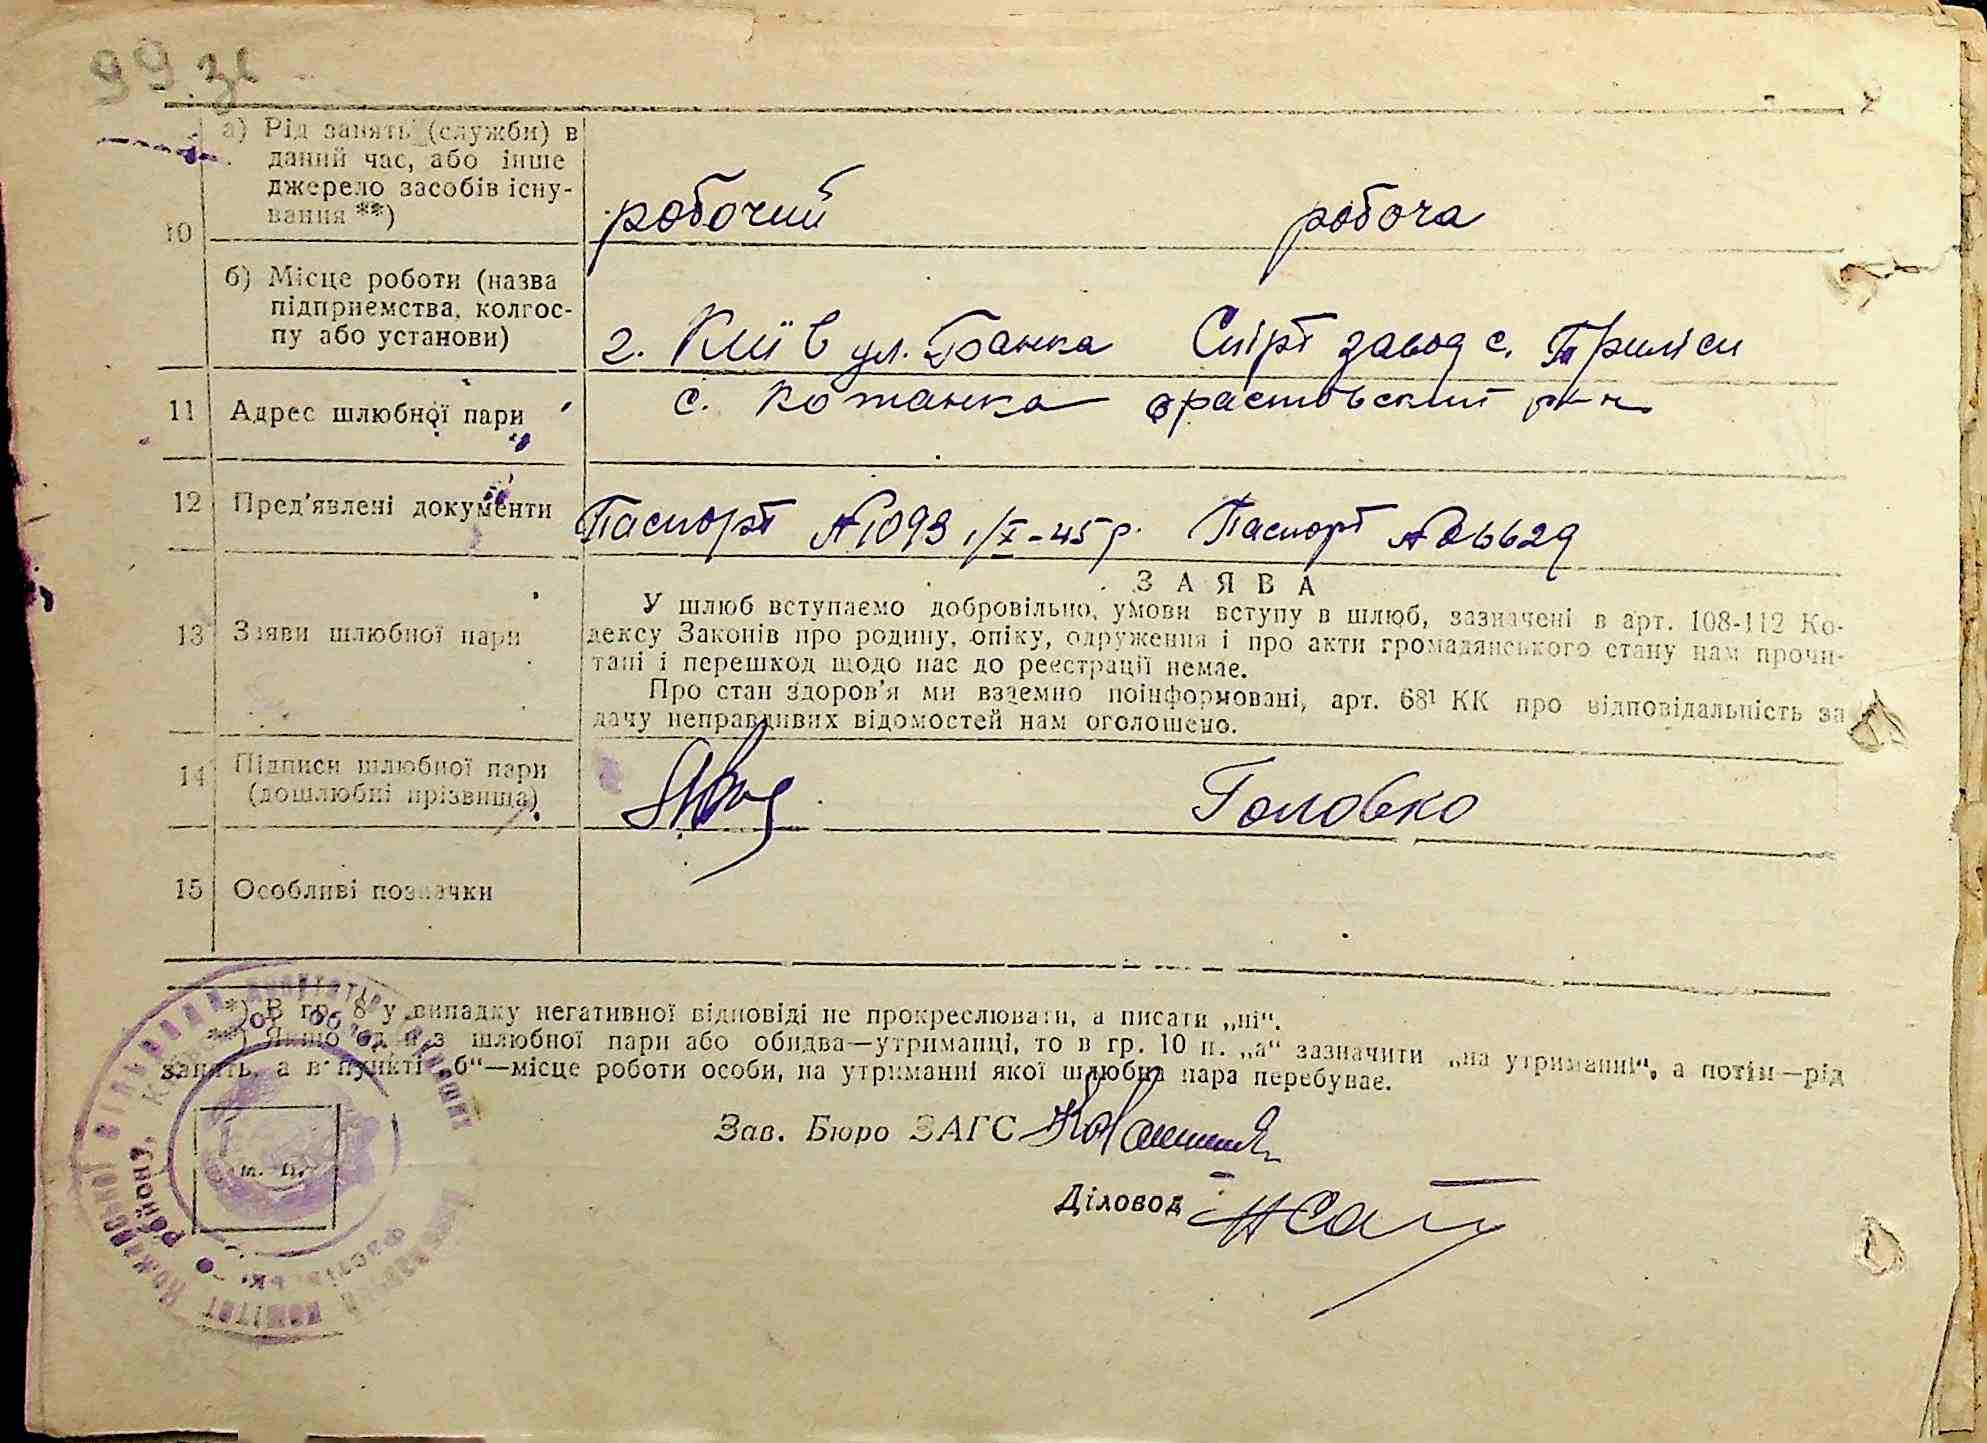 99 зв
а) Рід занять (служби) в
даний час, або інше
джерело засобів існу-
вання **)
10
робочий робоча
б) Місце роботи (назва
підприємства, колгос-
пу або установи)
г. Київ ул. Банка Спірт завод с. Триліси
11 Адрес шлюбної пари
с. Кожанка фрастовский р-н
12 Пред'явлені документи
Паспорт №1093 1/X-45р. Паспорт
13 Заяви шлюбної пари
ЗАЯВА
У шлюб вступаємо добровільно, умови вступу в шлюб, зазначені в арт. 108-112 Ко-
дексу Законів про родину, опіку, одруження і про акти громадянського стану нам прочи-
тані і перешкод щодо нас до реєстрації немає.
Про стан здоров'я ми взаємно поінформовані, арт. 68¹ КК про відповідальність за
дачу неправдивих відомостей нам оголошено.
14 Підписи шлюбної пари
(дошлюбні прізвища)
Головко
15 Особливі позначки
*) В гр. 8 у випадку негативної відповіді не прокреслювати, а писати „ні“.
**) Якщо один з шлюбної пари або обидва—утриманці, то в гр. 10 п. „а“ зазначити „на утриманні“, а потім—рід
занять, а в пункті „б“—місце роботи особи, на утриманні якої шлюбна пара перебуває.
Зав. Бюро ЗАГС
м. п.
Діловод